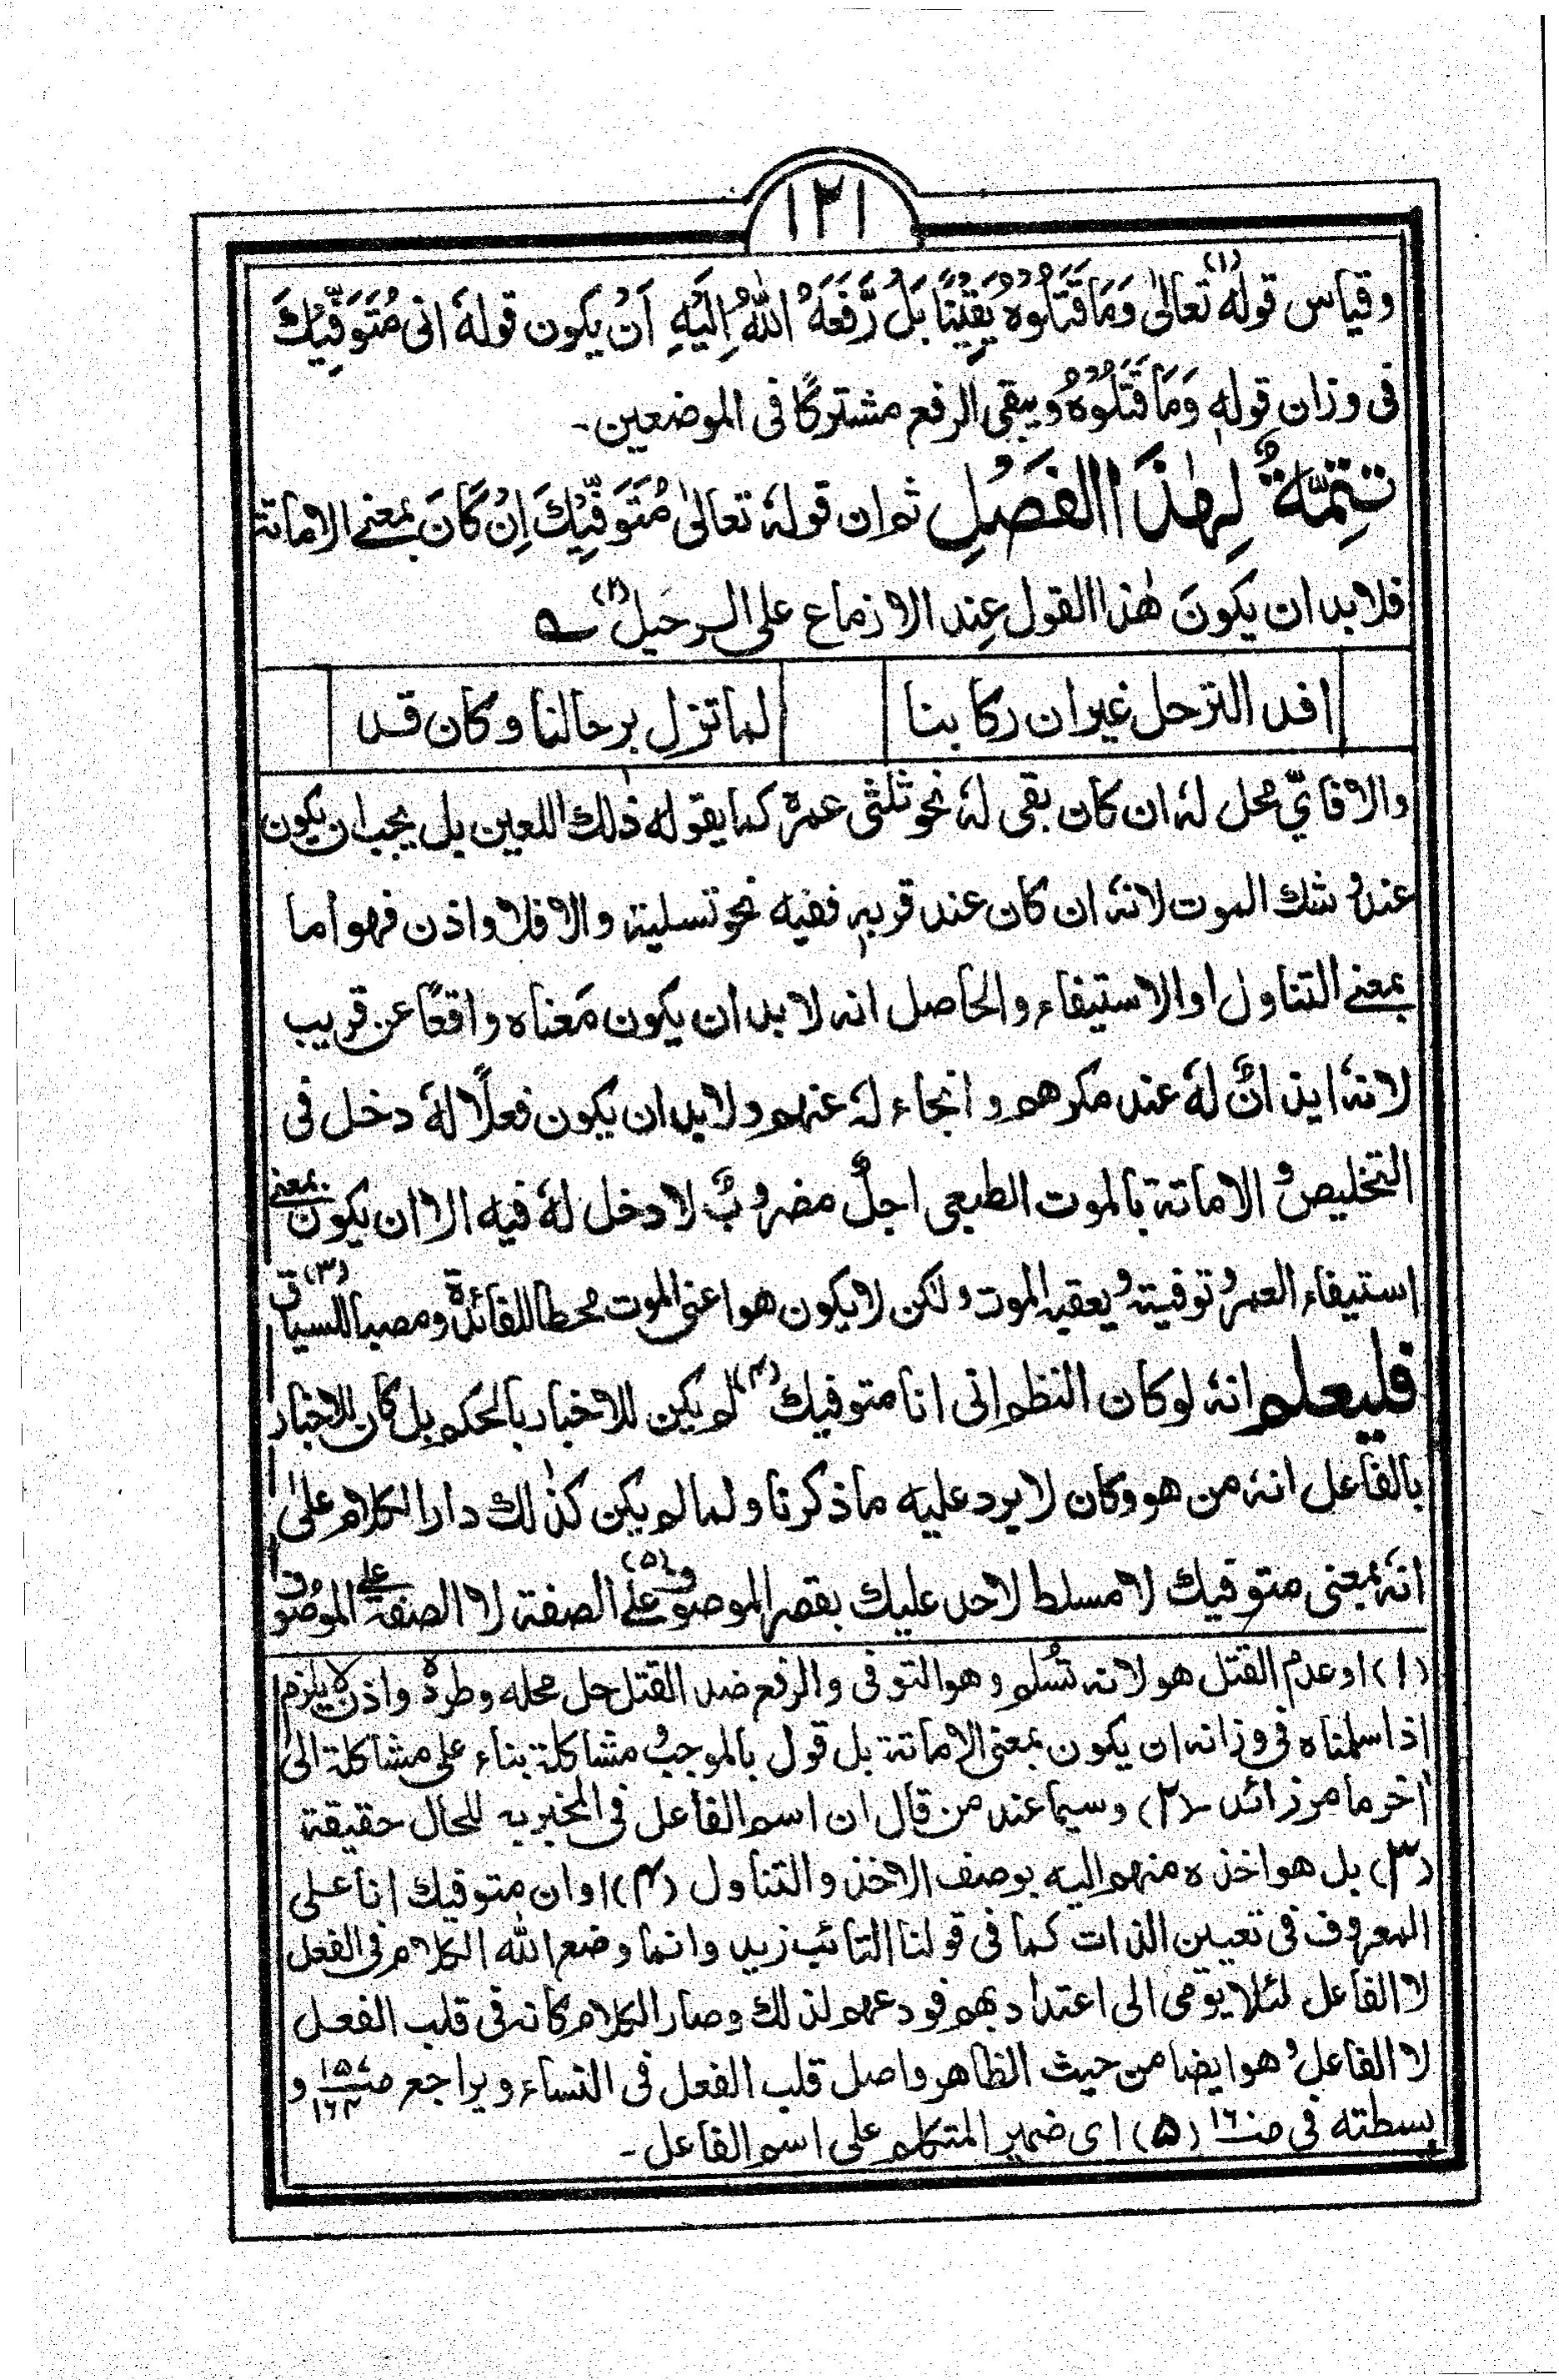 ۱۲۱
وقياس قولهٗ (۱) تعالىٰ وَمَا قَتَلُوْهُ يَقِيْنًا بَلْ رَّفَعَهُ اللّٰهُ اِلَيْهِ اَنْ يكون قولهٗ انى مُتَوَفِّيْكَ
فى وزان قولهٖ وَمَا قَتَلُوْهُ ويبقى الرفع مشتركًا فى الموضعين۔
تَتِمَّةٌ لِهٰذَا الفَصْلِ ثم ان قولهٗ تعالىٰ مُتَوَفِّيْكَ اِنْ كَانَ بمعنى الاماتة
فلا بد ان يكونَ هٰذا القول عِند الازماع على الرحيل (۲) ؎
افد الترحل غير ان ركابنا لما تزل برحالنا وكان قد
والا فاىّ محل لهٗ ان كان بقى لهٗ نحو ثلثى عمره كما يقوله ذٰلك اللعين بل يجب ان يكون
عند وشك الموت لانهٗ ان كان عند قربهٖ ففيه نحو تسلية والا فلا واذن فهو اما
بمعنى التناول او الاستيفاء والحاصل انه لا بد ان يكون مَعْناه واقعًا عن قريب
لانهٗ ايذانٌ لهٗ عند مكرهم وانجاء لهٗ عنهم ولا بد ان يكون فعلًا لهٗ دخل فى
التخليص والاماتة بالموت الطبعى اجلٌ مضروبٌ لا دخل لهٗ فيه الا ان يكون بمعنى
استيفاء العمر وتوفيته ويعقبه الموت ولكن لا يكون هو اعنى الموت محطا للفائدة ومصبا للسياق (۳)
فليعلم انهٗ لو كان النظم انى انا متوفيك (۴) لم يكن للاخبار بالحكم بل كان للاخبار
بالفاعل انهٗ من هو وكان لا يرد عليه ما ذكرنا ولما لم يكن كذٰلك دار الكلام علىٰ
انهٗ بمعنى متوفيك لا مسلط لاحد عليك بقصر الموصوف (۵) على الصفة لا الصفة على الموصوف
(۱) او عدم القتل هو لانه تسلم وهو التوفى والرفع ضد القتل حل محله وطرده واذن لا يلزم
اذا سلمناه فى وزانه ان يكون بمعنى الاماتة بل قول بالموجب مشاكلة بناء على مشاكلة الى
اخر ما مر زائد۔ (۲) وسيما عند من قال ان اسم الفاعل فى المخبر به للحال حقيقة
(۳) بل هو اخذه منهم اليه بوصف الاخذ والتناول (۴) او ان متوفيك انا على
المعروف فى تعيين الذات كما فى قولنا التائب زيد وانما وضع الله الكلام فى الفعل
لا الفاعل لئلا يومى الى اعتداد بهم فودعهم لذلك وصار الكلام كانه فى قلب الفعل
لا الفاعل وهو ايضا من حيث الظاهر واصل قلب الفعل فى النساء ويراجع و
بسطته فى (۵) اى ضمير المتكلم على اسم الفاعل۔